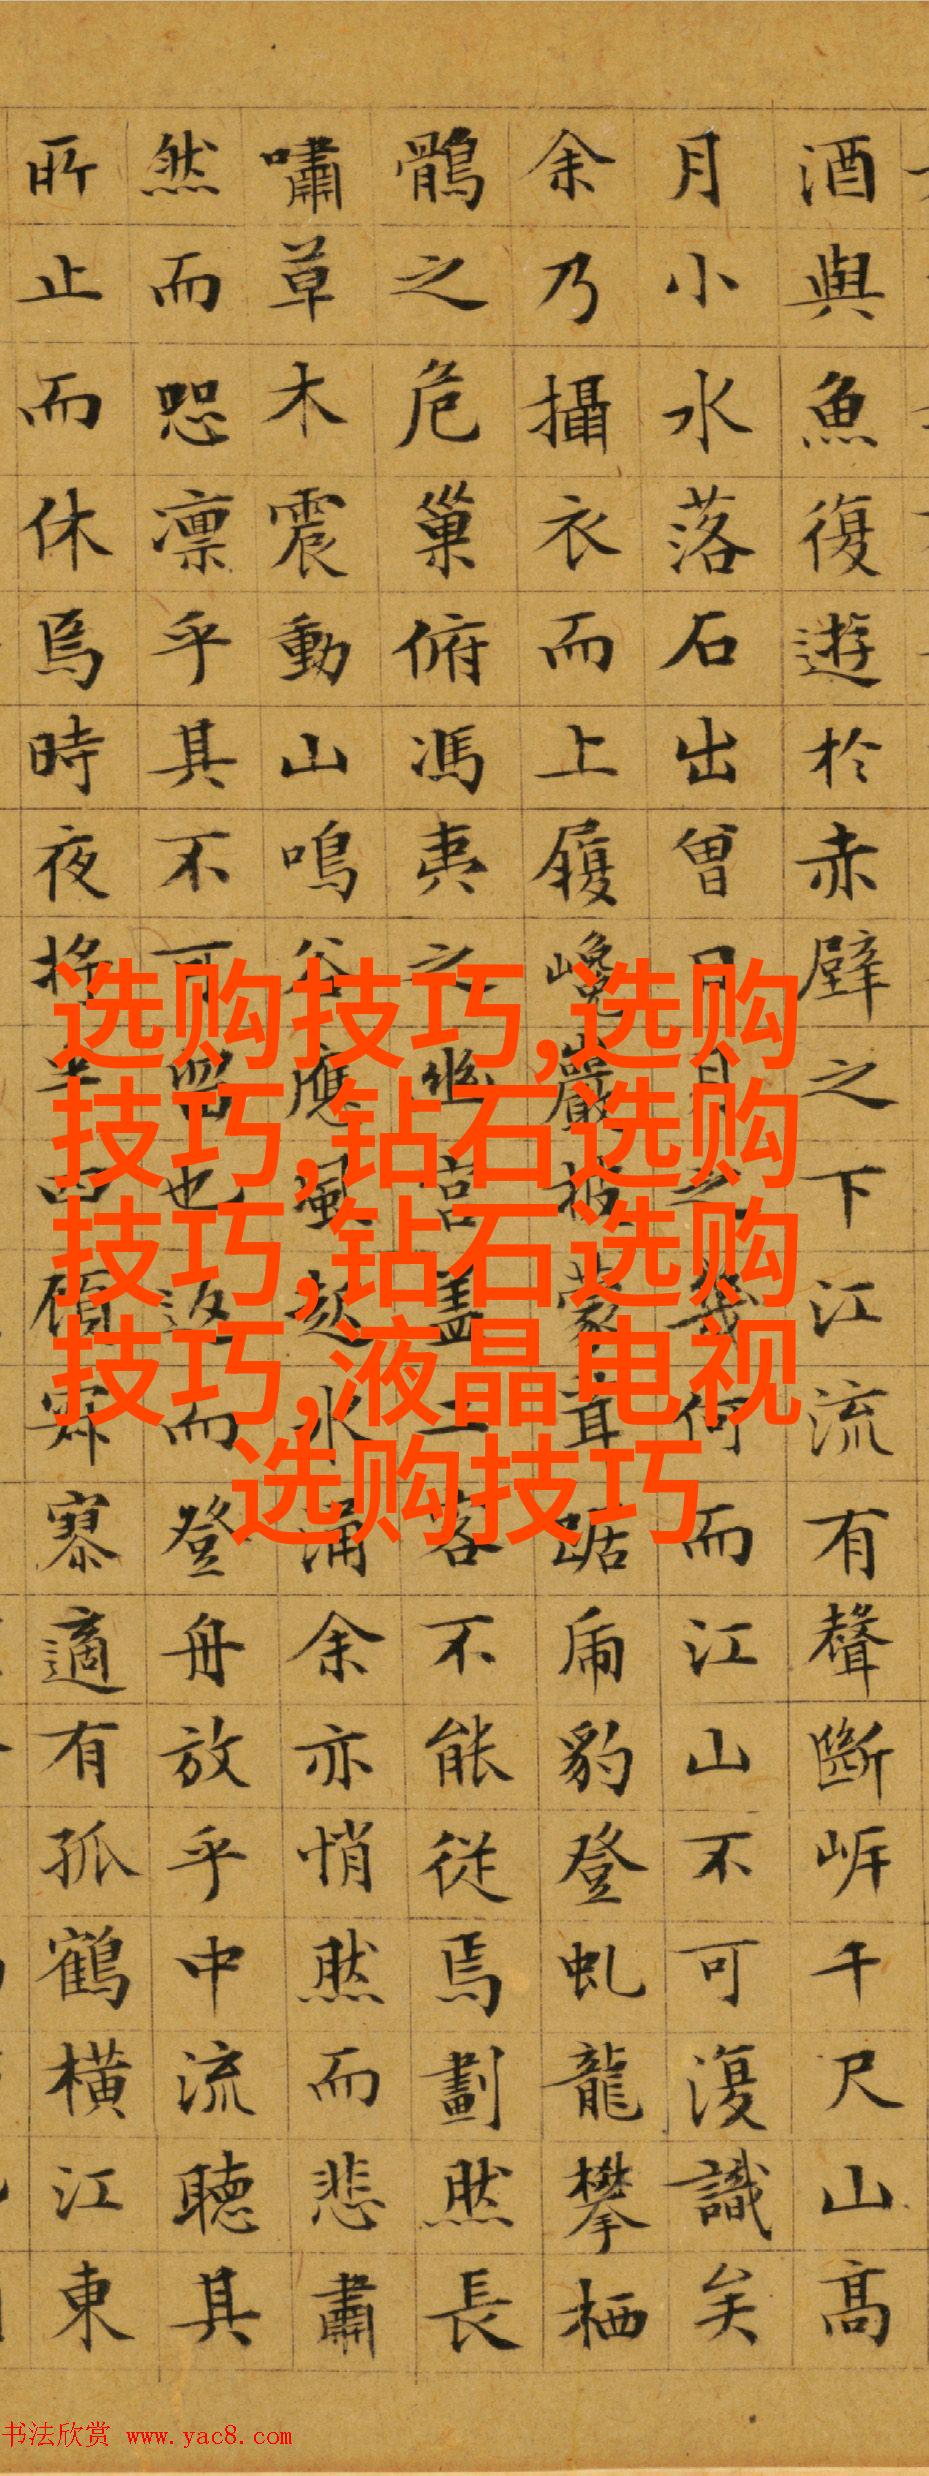 酒與魚復遊於赤壁之下江流有聲斷岸千尺山高
月小水落石出曾日月之幾何而江山不可復識矣
余乃攝衣而上履巉巖披蒙茸踞虎豹登虬龍攀栖
鶻之危巢俯馮夷之幽宮蓋二客不能從焉劃然長
嘯草木震動山鳴谷應風起水涌余亦悄然而悲肅
然而恐凛乎其不可留也返而登舟放乎中流聽其
所止而休焉時夜將半四顧寂寥適有孤鶴橫江東
选购技巧,选购
技巧,钻石选购
技巧,钻石选购
技巧,液晶电视
选购技巧
书法欣赏 www.yac8.com